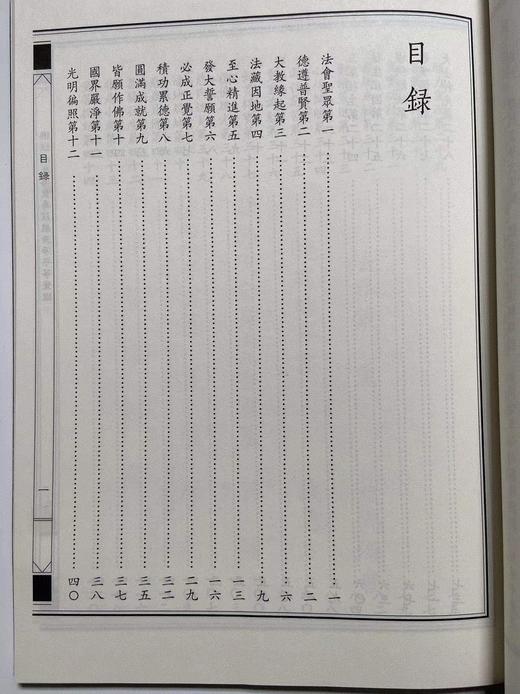 目録
法會聖眾第一……一
德遵普賢第二……二
大教緣起第三……六
法藏因地第四……九
至心精進第五……一三
發大誓願第六……一六
必成正覺第七……二九
積功累德第八……三二
圓滿成就第九……三五
皆願作佛第十……三七
國界嚴淨第十一……三八
光明徧照第十二……四〇
目錄
一